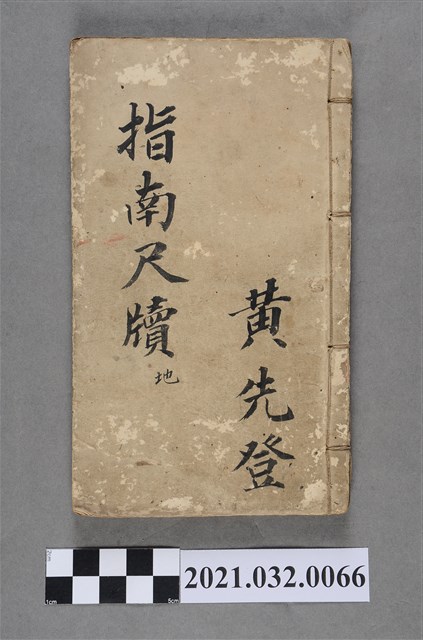 黃先登
指南尺牘
地
2cm
1cm
5cm
2021.032.0066